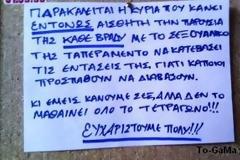 ΠΑΡΑΚΑΛΕΙΤΑΙ Η ΚΥΡΙΑ ΠΟΥ ΚΑΝΕΙ
ΕΝΤΟΝΩΣ ΑΙΣΘΗΤΗ ΤΗΝ ΠΑΡΟΥΣΙΑ
ΤΗΣ ΚΑΘΕ ΒΡΑΔΥ ΜΕ ΤΟ ΣΕΞΟΥΑΛΙΚΟ
ΤΗΣ ΤΑΠΕΡΑΜΕΝΤΟ ΝΑ ΚΑΤΕΒΑΣΕΙ
ΤΙΣ ΕΝΤΑΣΕΙΣ ΤΗΣ, ΓΙΑΤΙ ΚΑΠΟΙΟΙ
ΠΡΟΣΠΑΘΟΥΝ ΝΑ ΔΙΑΒΑΣΟΥΝ.
ΚΙ ΕΜΕΙΣ ΚΑΝΟΥΜΕ ΣΕΞ, ΑΛΛΑ ΔΕΝ ΤΟ
ΜΑΘΑΙΝΕΙ ΟΛΟ ΤΟ ΤΕΤΡΑΓΩΝΟ!!!
ΕΥΧΑΡΙΣΤΟΥΜΕ ΠΟΛΥ!!!
To-GaMa.